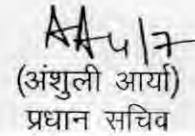 (अंशुली आर्या)
प्रधान सचिव